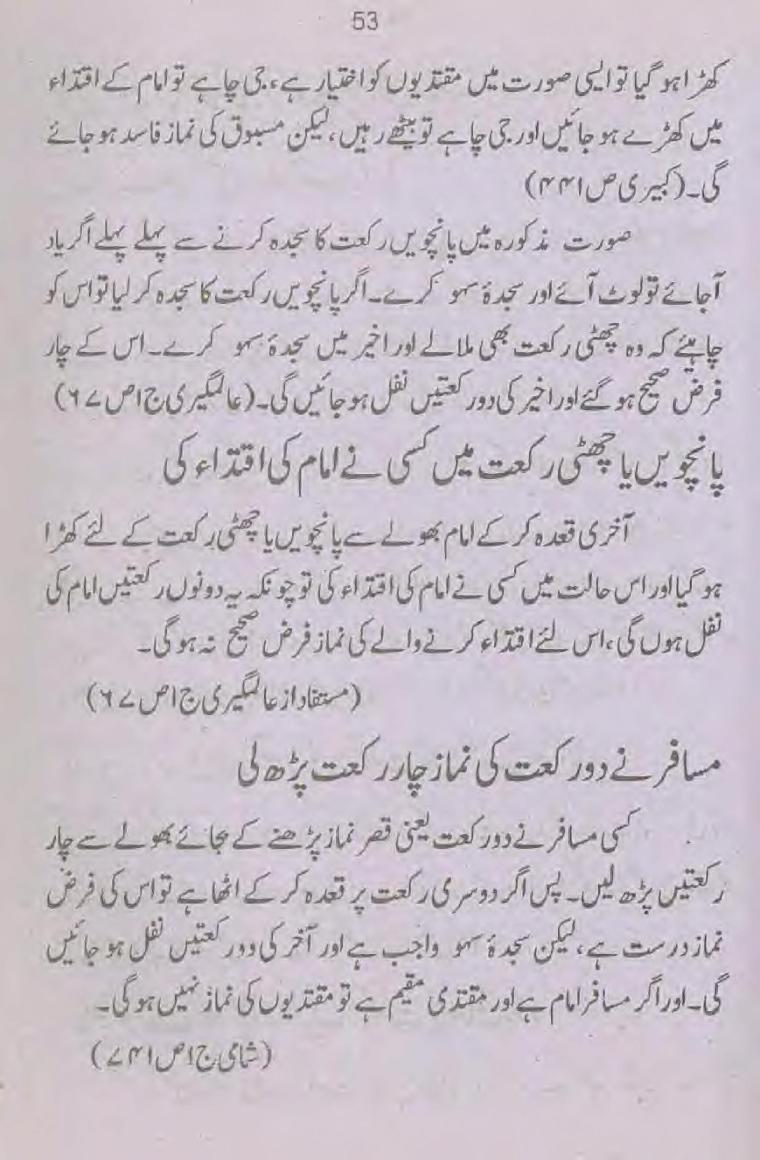 53
کھڑا ہو گیا تو ایسی صورت میں مقتدیوں کو اختیار ہے، جی چاہے تو امام کے اقتداء
میں کھڑے ہو جائیں اور جی چاہے تو بیٹھے رہیں، لیکن مسبوق کی نماز فاسد ہو جائے
گی۔ (کبیری ص ۴۴۱)
صورت مذکورہ میں پانچویں رکعت کا سجدہ کرنے سے پہلے پہلے اگر یاد
آجائے تو لوٹ آئے اور سجدۂ سہو کرے۔ اگر پانچویں رکعت کا سجدہ کر لیا تو اس کو
چاہئے کہ وہ چھٹی رکعت بھی ملالے اور اخیر میں سجدۂ سہو کرے۔ اس کے چار
فرض صحیح ہو گئے اور اخیر کی دو رکعتیں نفل ہو جائیں گی۔ (عالمگیری ج ۱ ص ۶۷)
پانچویں یا چھٹی رکعت میں کسی نے امام کی اقتداء کی
آخری قعدہ کر کے امام بھولے سے پانچویں یا چھٹی رکعت کے لئے کھڑا
ہو گیا اور اس حالت میں کسی نے امام کی اقتداء کی تو چونکہ یہ دونوں رکعتیں امام کی
نفل ہوں گی، اس لئے اقتداء کرنے والے کی نماز فرض صحیح نہ ہوگی۔
(مستفاد از عالمگیری ج ۱ ص ۶۷)
مسافر نے دو رکعت کی نماز چار رکعت پڑھ لی
کسی مسافر نے دو رکعت یعنی قصر نماز پڑھنے کے بجائے بھولے سے چار
رکعتیں پڑھ لیں۔ پس اگر دوسری رکعت پر قعدہ کر کے اٹھا ہے تو اس کی فرض
نماز درست ہے، لیکن سجدۂ سہو واجب ہے اور آخر کی دو رکعتیں نفل ہو جائیں
گی۔ اور اگر مسافر امام ہے اور مقتدی مقیم ہے تو مقتدیوں کی نماز نہیں ہوگی۔
(شامی ج ۱ ص ۷۴۱)